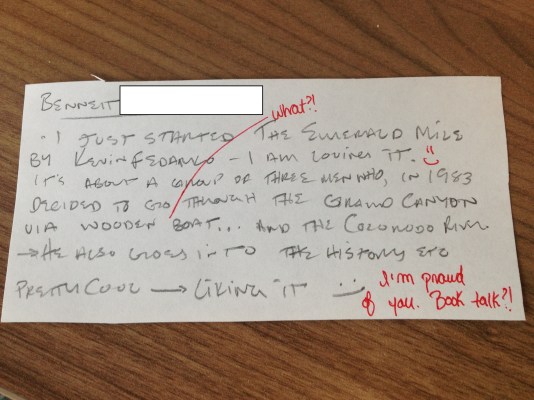 BENNETT
what?!
- I JUST STARTED THE EMERALD MILE
BY KEVIN FEDARKO - I AM LOVING IT.
IT'S ABOUT A GROUP OF THREE MEN WHO, IN 1983
DECIDED TO GO THROUGH THE GRAND CANYON
VIA WOODEN BOAT... AND THE COLORODO RIVER
→ HE ALSO GOES INTO THE HISTORY ETC
PRETTY COOL → LIKING IT
I'm proud
of you. Book talk?!